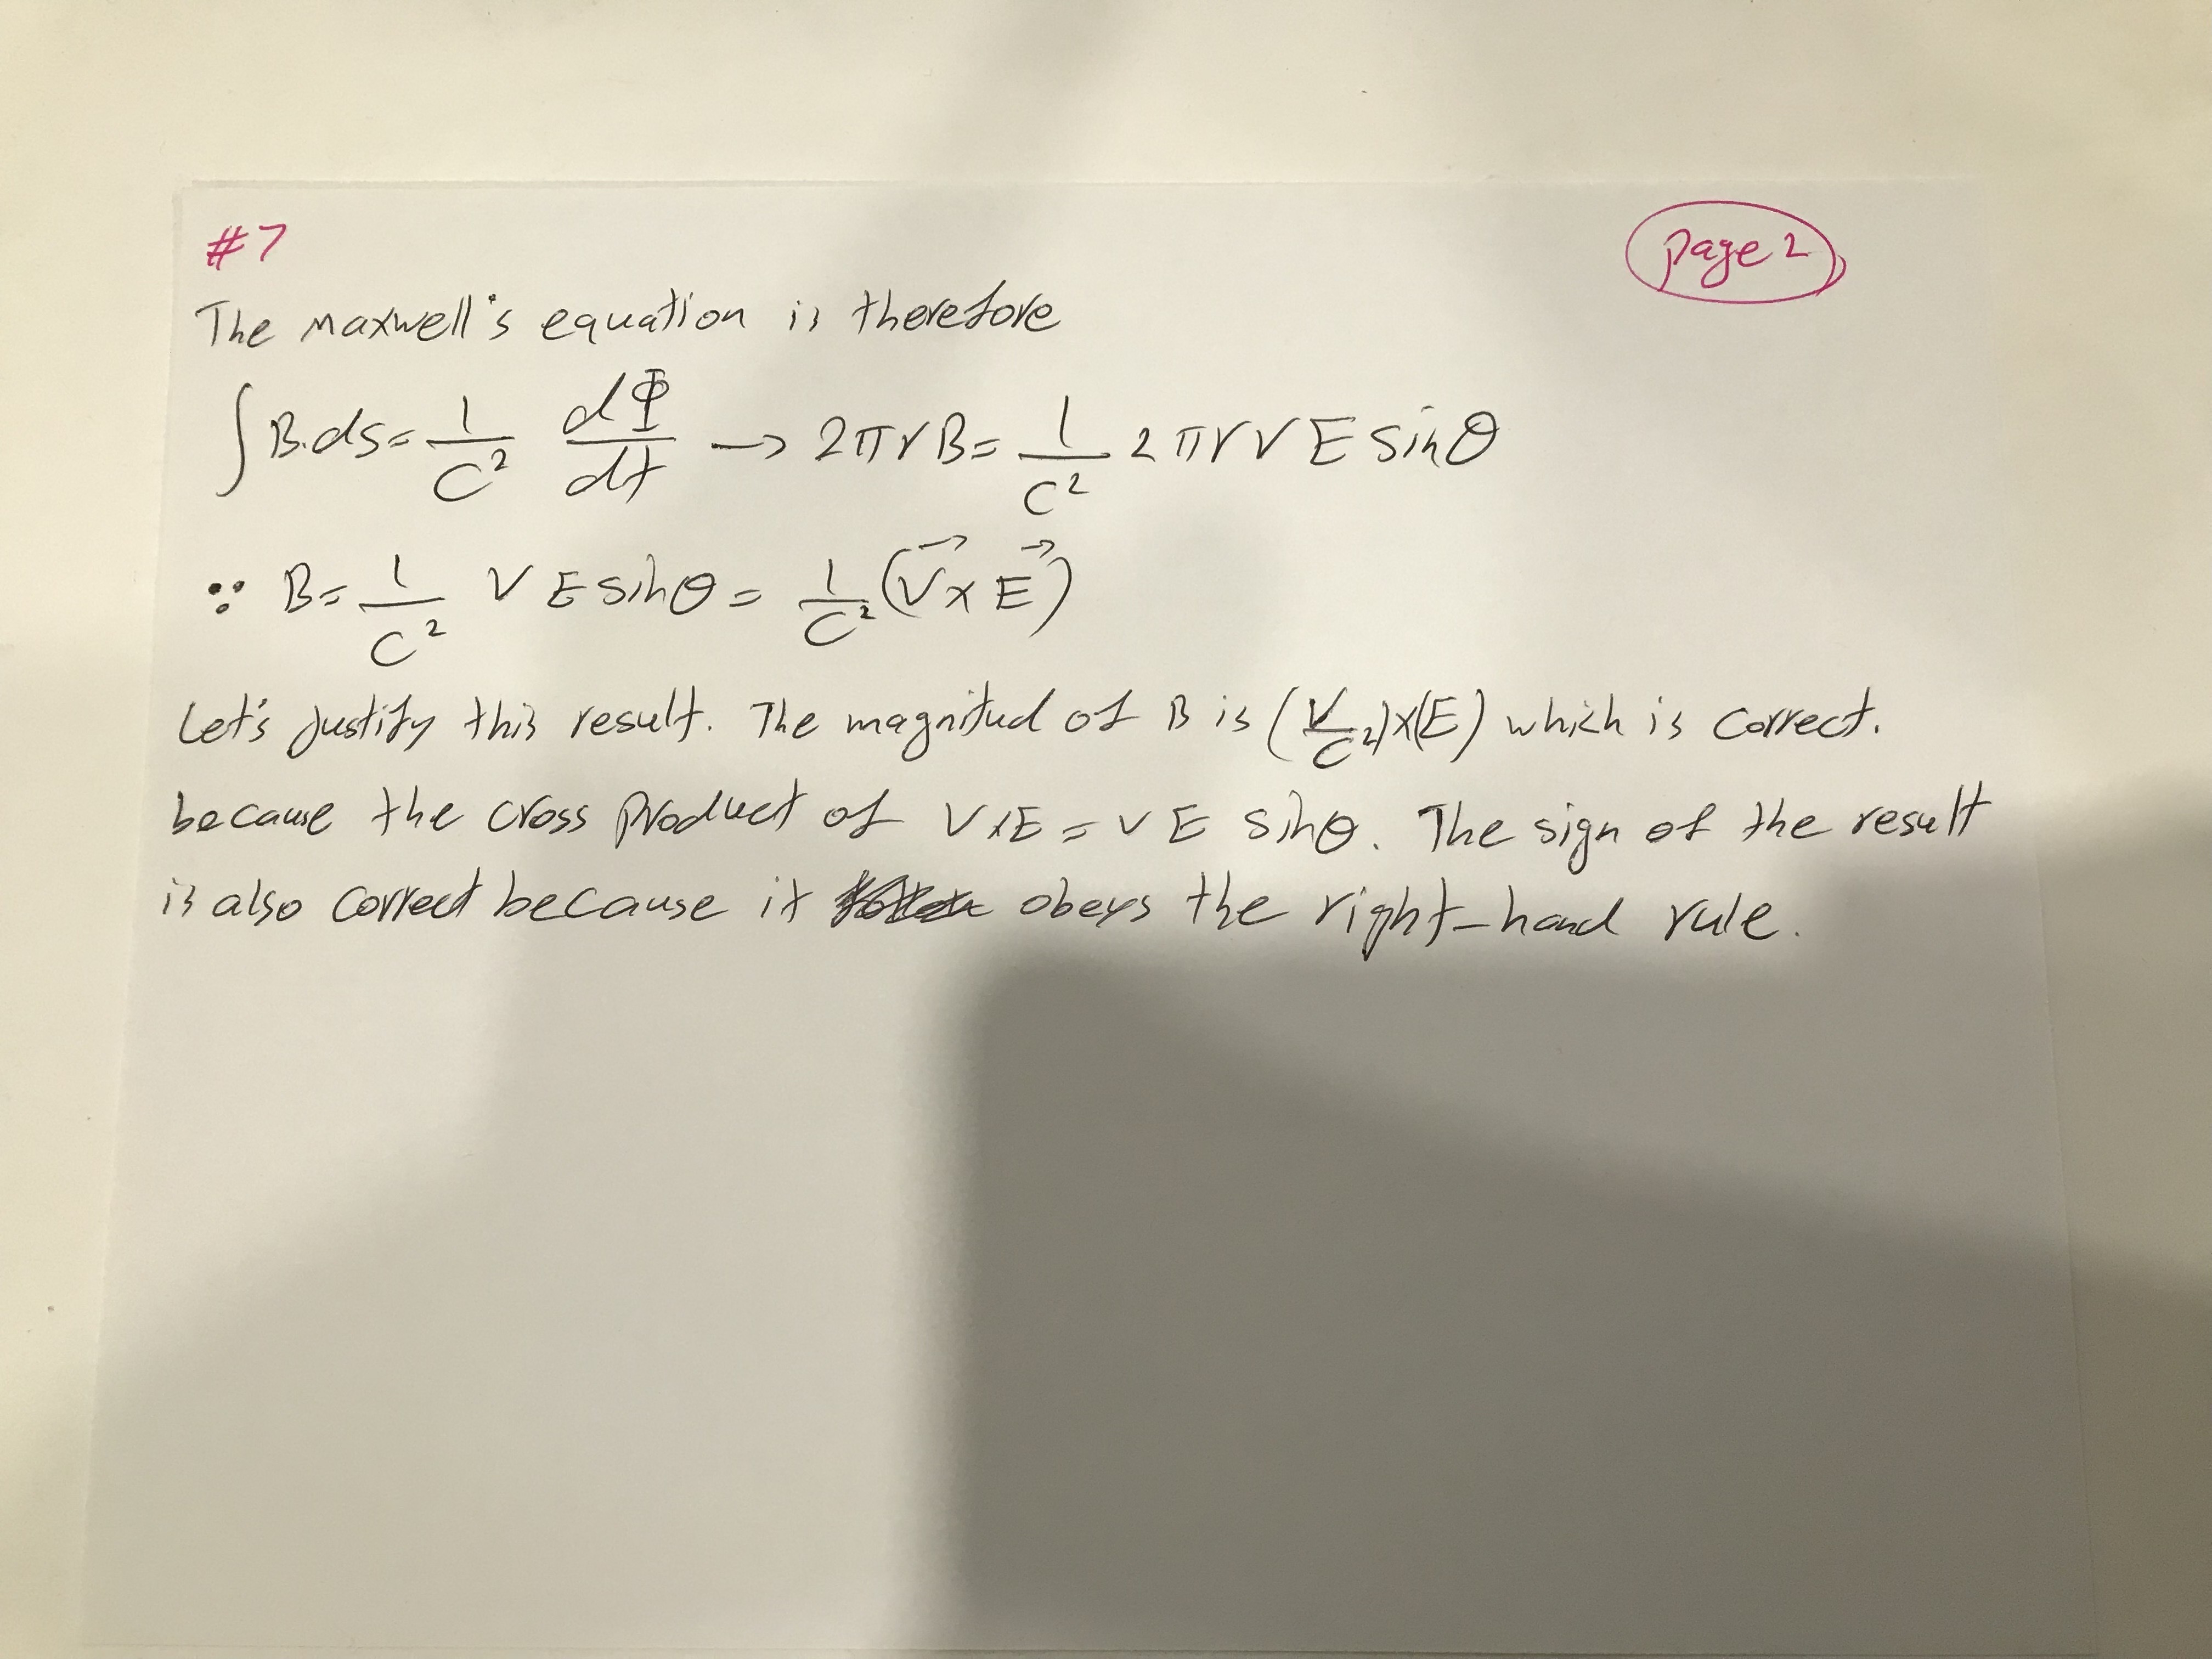 #7
page 2
The Maxwell's equation is therefore
∫B.ds = 1/C² dΦ/dt → 2πrB = 1/C² 2πrVE sinθ
∵ B = 1/C² VE sinθ = 1/C² (V⃗ x E⃗)
Let's Justify this result. The magnitud of B is (V/C²)x(E) which is correct.
because the cross product of VxE = VE sinθ. The sign of the result
is also correct because it obeys the right-hand rule.